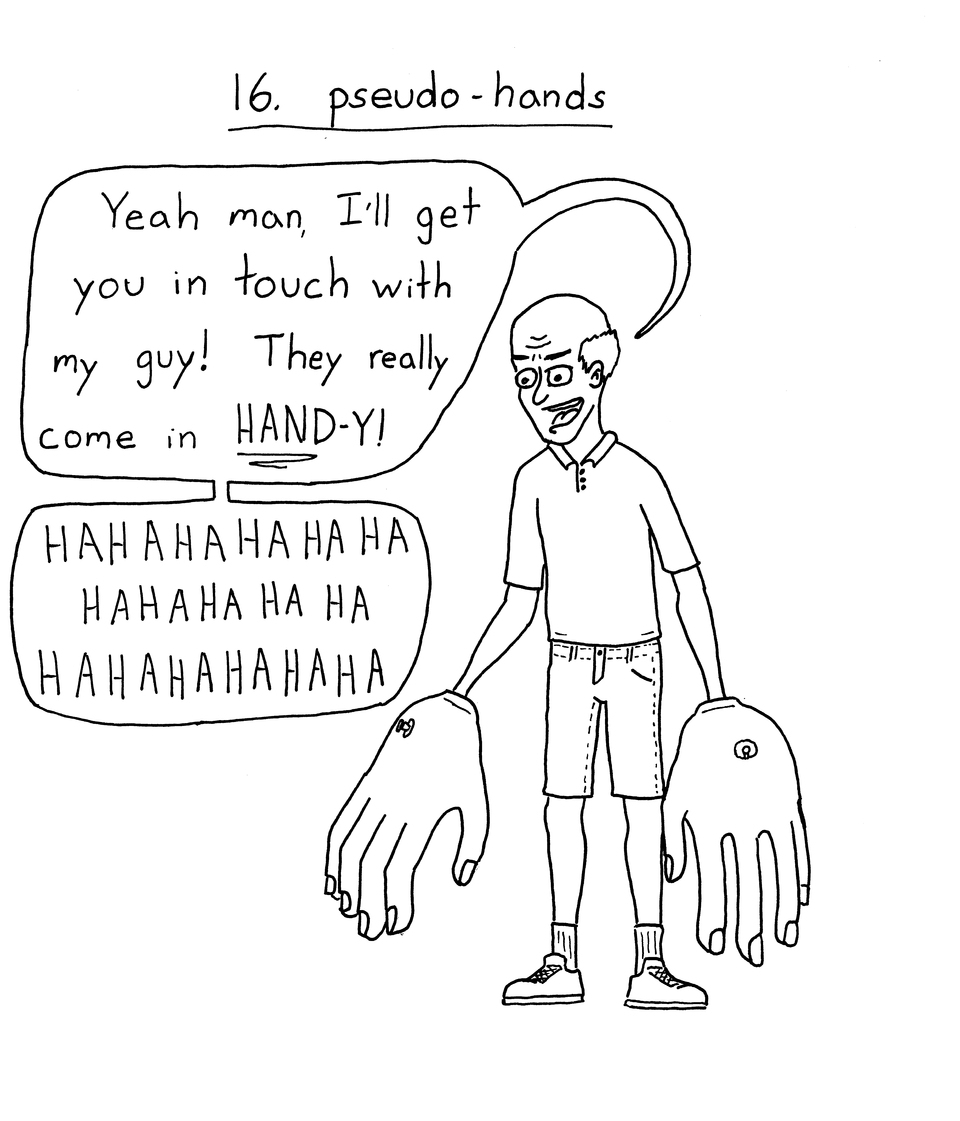 16. pseudo-hands
Yeah man, I'll get
you in touch with
my guy! They really
come in HAND-Y!
HAHAHAHAHAHA
HAHAHA HA HA
HAHAHAHAHAHA